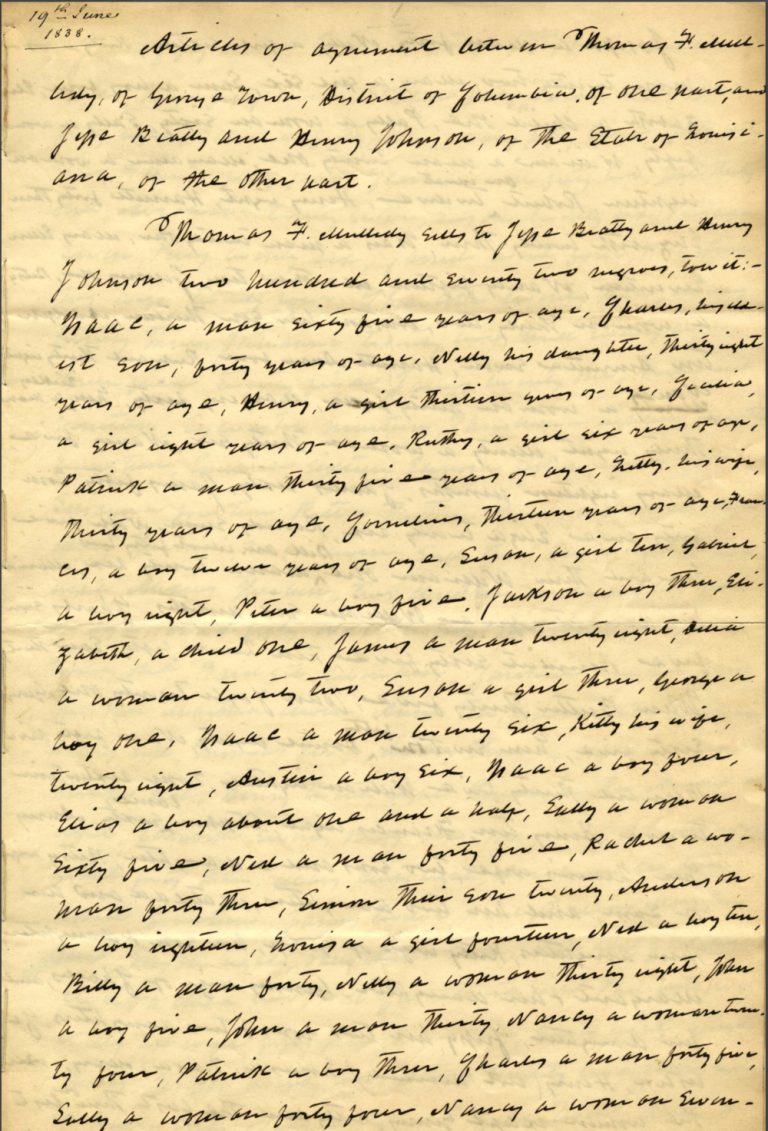 19th June
1838.
Articles of agreement between Thomas F. Mull-
edy, of George Town, District of Columbia, of one part, and
Jesse Beatty and Henry Johnson, of the State of Louisi-
ana, of the other part.
Thomas F. Mulledy sells to Jesse Beatty and Henry
Johnson two hundred and seventy two negroes, to wit:-
Isaac, a man sixty five years of age, Charles, his eld-
est son, forty years of age, Nelly his daughter, thirty eight
years of age, Henry, a girl thirteen years of age, Cecilia,
a girl eight years of age, Ruthy, a girl six years of age,
Patrick a man thirty five years of age, Letty, his wife,
thirty years of age, Cornelius, thirteen years of age, Fran-
cis, a boy twelve years of age, Susan, a girl ten, Gabriel,
a boy eight, Peter a boy five, Jackson a boy three, Eli-
zabeth, a child one, James a man twenty eight, Delia
a woman twenty two, Susan a girl three, George a
boy one, Isaac a man twenty six, Kitty his wife,
twenty eight, Austin a boy six, Isaac a boy four,
Elias a boy about one and a half, Sally a woman
sixty five, Ned a man forty five, Rachel a wo-
man forty three, Simon their son twenty, Anderson
a boy eighteen, Louisa a girl fourteen, Ned a boy ten,
Billy a man forty, Nelly a woman thirty eight, John
a boy five, John a man thirty Nancy a woman twen-
ty four, Patrick a boy three, Charles a man forty five,
Sally a woman forty four, Nancy a woman seven-